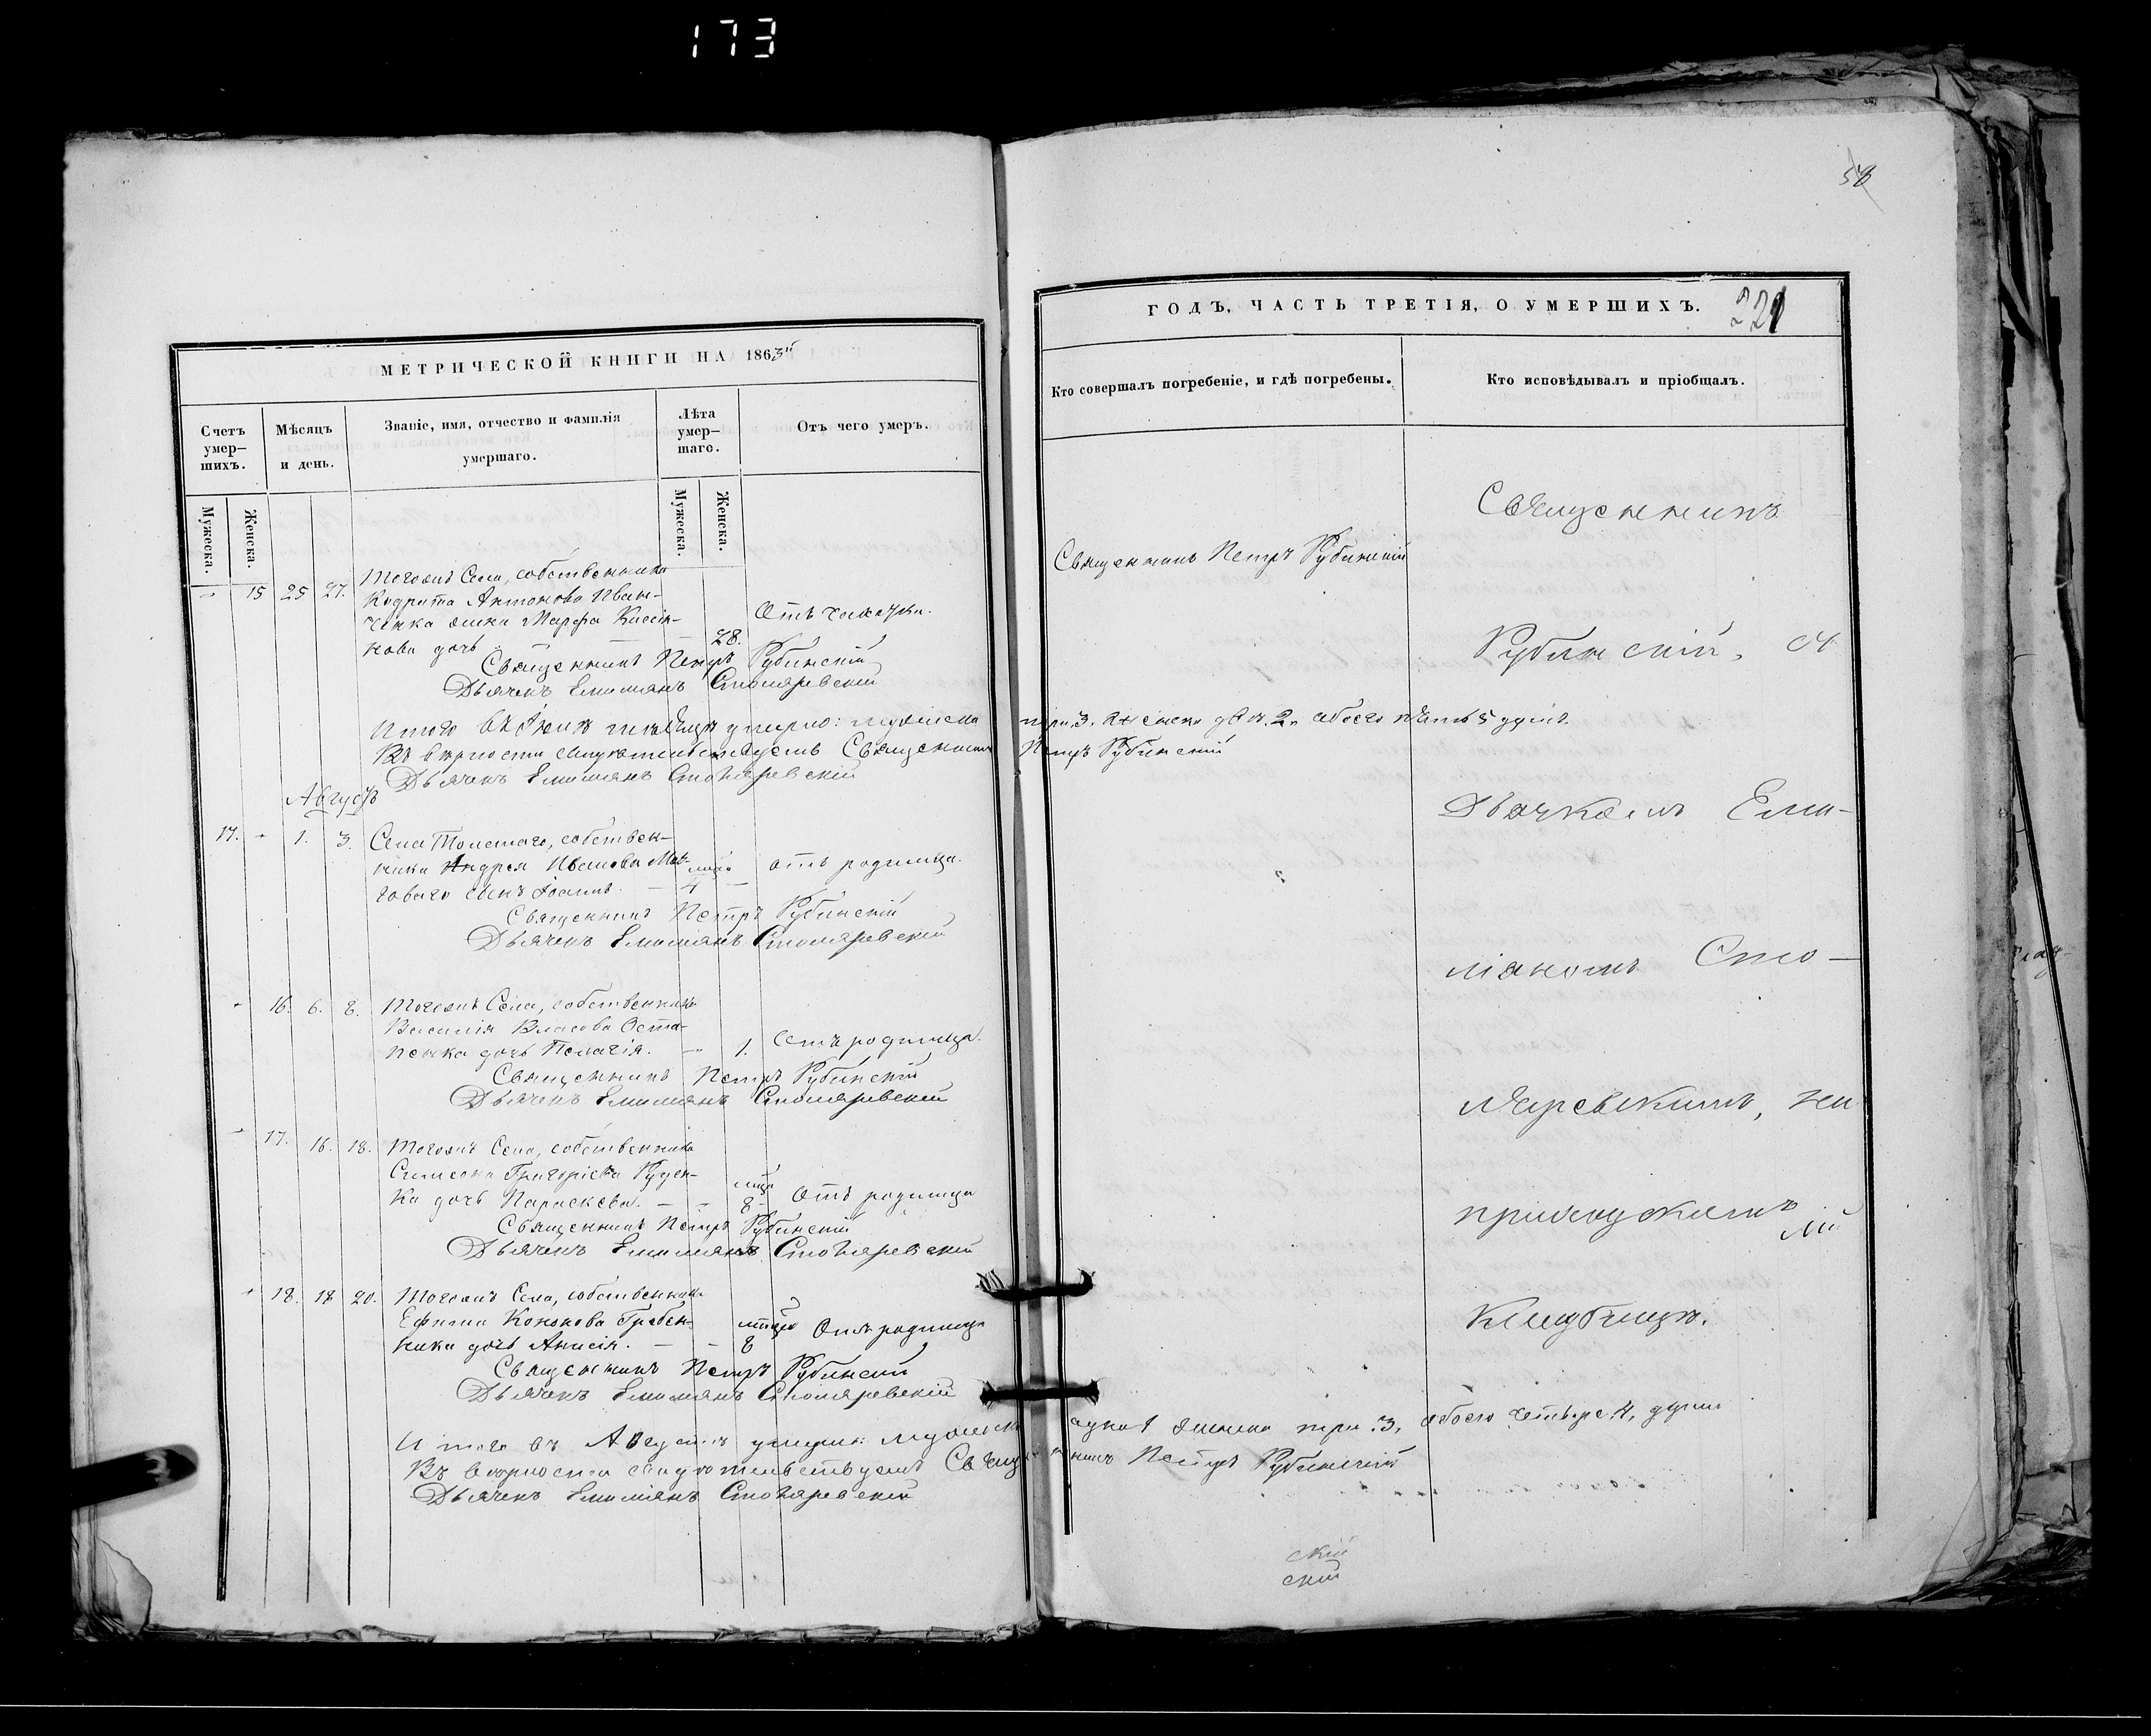 173
58
МЕТРИЧЕСКОЙ КНИГИ НА 1863й
Счетъ умер-шихъ.
Мѣсяцъ и день.
Званіе, имя, отчество и фамилія умершаго.
Лѣта умер-шаго.
Отъ чего умеръ.
Мужеска.
Женска.
Мужеска.
Женска.
- 15 25 27. Тогожъ Села, собственника
Кодрата Антонова Иван-
ченка жена Марфа Кассія-
нова дочь — 28. Отъ чахотки.
Священникъ Петръ Рубинскій
Дьячекъ Емиліанъ Столяревскій
Итого въ Іюлѣ мѣсяцѣ умерло: мужеска
Въ вѣрности свидѣтельствуемъ Священникъ
Дьячекъ Емиліанъ Столяревскій
Августъ
17. - 1. 3. Села Толстаго, собствен-
ника Андрея Иванова
сынъ Іоаннъ. — 4 — отъ родимца.
Священникъ Петръ Рубинскій
Дьячекъ Емиліанъ Столяревскій
- 16. 6. 8. Тогожъ Села, собственника
Василія Власова Оста-
пенка дочь Пелагія. — 1. Отъ родимца.
Священникъ Петръ Рубинскій
Дьячекъ Емиліанъ Столяревскій
- 17. 16. 18. Тогожъ Села, собственника
Симеона Григоріева Руден-
ка дочь Параскева. — - 8 Отъ родимца
Священникъ Петръ Рубинскій
Дьячекъ Емиліанъ Столяревскій
- 18. 18 20. Тогожъ Села, собственника
Ефима Кононова Гребен-
ника дочь Анисія. — - 8 Отъ родимца
Священникъ Петръ Рубинскій
Дьячекъ Емиліанъ Столяревскій
Итого въ Августѣ умерло: мужеска
Въ вѣрности свидѣтельствуемъ Священ
Дьячекъ Емиліанъ Столяревскій
ГОДЪ, ЧАСТЬ ТРЕТІЯ, О УМЕРШИХЪ.
221
Кто совершалъ погребеніе, и гдѣ погребены.
Кто исповѣдывалъ и пріобщалъ.
Священникъ Петръ Рубинскій
три.3. женска двѣ.2. обоего пять 5 душъ.
Петръ Рубинскій
Священникъ
Рубинскій, съ
Дьячкомъ Еми-
ліаномъ Сто-
ляревскимъ, на
приходскомъ
кладбищѣ.
одна 1 женска три .3, обоего четыре 4, души
никъ Петръ Рубинскій
скій
скій